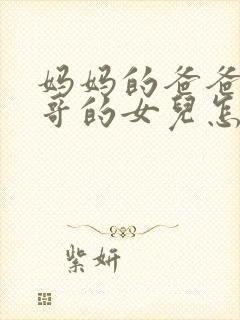 妈妈的爸爸
哥的女兒怎
紫妍